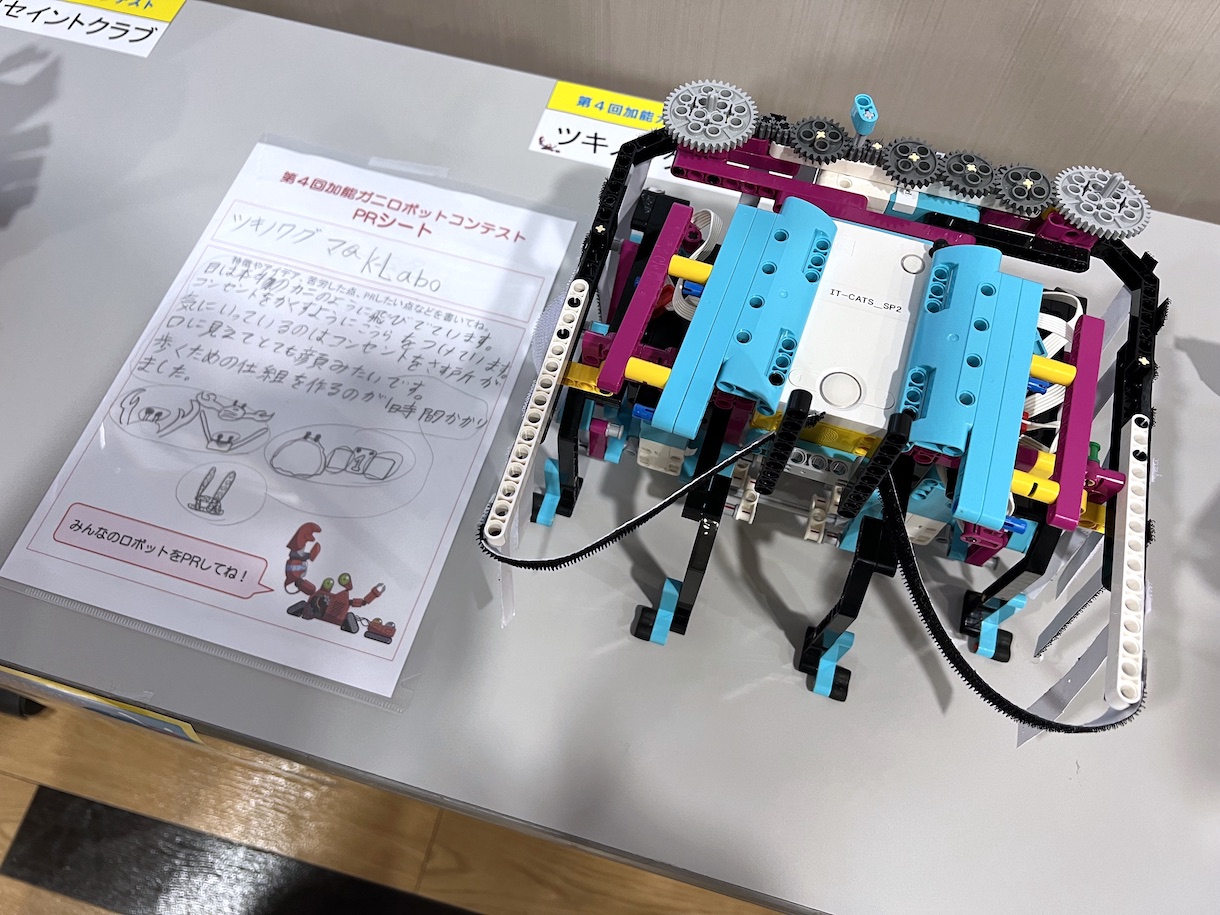 セイントクラブ
第4回加能ガ
ツキノ
第4回加能ガニロボットコンテスト
PRシート
ツキノワグマakLabo
特徴やアイデア、苦労した点、PRしたい点などを書いてね。
目は本物のカニのように飛びでています。
コンセントをかくすようにこうらをつけています。
気にいっているのはコンセントをさす所が
口に見えてとても顔みたいです。
歩くための仕組を作るのが1時間かかり
ました。
みんなのロボットをPRしてね!
IT-CATS_SP2